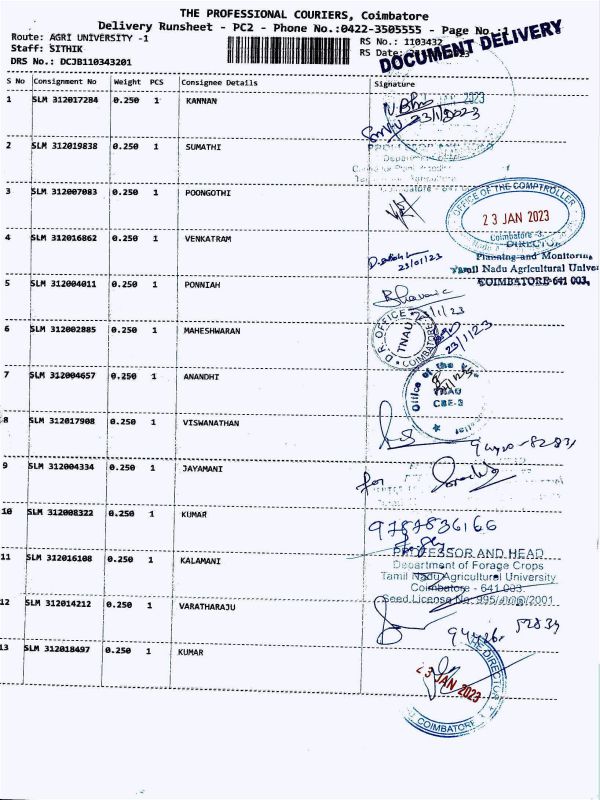 THE PROFESSIONAL COURIERS, Coimbatore
Delivery Runsheet - PC2 - Phone No.:0422-3505555 - Page No.:1
Route: AGRI UNIVERSITY -1
RS No.: 1103432
Staff: SITHIK
RS Date:
DRS No.: DCJB110343201
DOCUMENT DELIVERY
S No Consignment No Weight PCS Consignee Details Signature
1 SLM 312017284 0.250 1 KANNAN
2023
23/1/2023
2 SLM 312019838 0.250 1 SUMATHI
3 SLM 312007083 0.250 1 POONGOTHI
OFFICE OF THE COMPTROLLER
23 JAN 2023
Coimbatore -3.
4 SLM 312016862 0.250 1 VENKATRAM
23/01/23
DIRECTOR
Planning and Monitoring
Tamil Nadu Agricultural Univer
COIMBATORE-641 003.
5 SLM 312004011 0.250 1 PONNIAH
6 SLM 312002885 0.250 1 MAHESHWARAN
D.R. OFFICE
TNAU
COIMBATORE
23/1/23
7 SLM 312004657 0.250 1 ANANDHI
Office of the
TNAU
CBE-3
8 SLM 312017908 0.250 1 VISWANATHAN
9 SLM 312004334 0.250 1 JAYAMANI
for
10 SLM 312008322 0.250 1 KUMAR
9787836166
11 SLM 312016108 0.250 1 KALAMANI
PROFESSOR AND HEAD
Department of Forage Crops
Tamil Nadu Agricultural University
Coimbatore - 641 003.
Seed License No. 995/2001
12 SLM 312014212 0.250 1 VARATHARAJU
13 SLM 312018497 0.250 1 KUMAR
THE DIRECTOR
23 JAN 2023
COIMBATORE